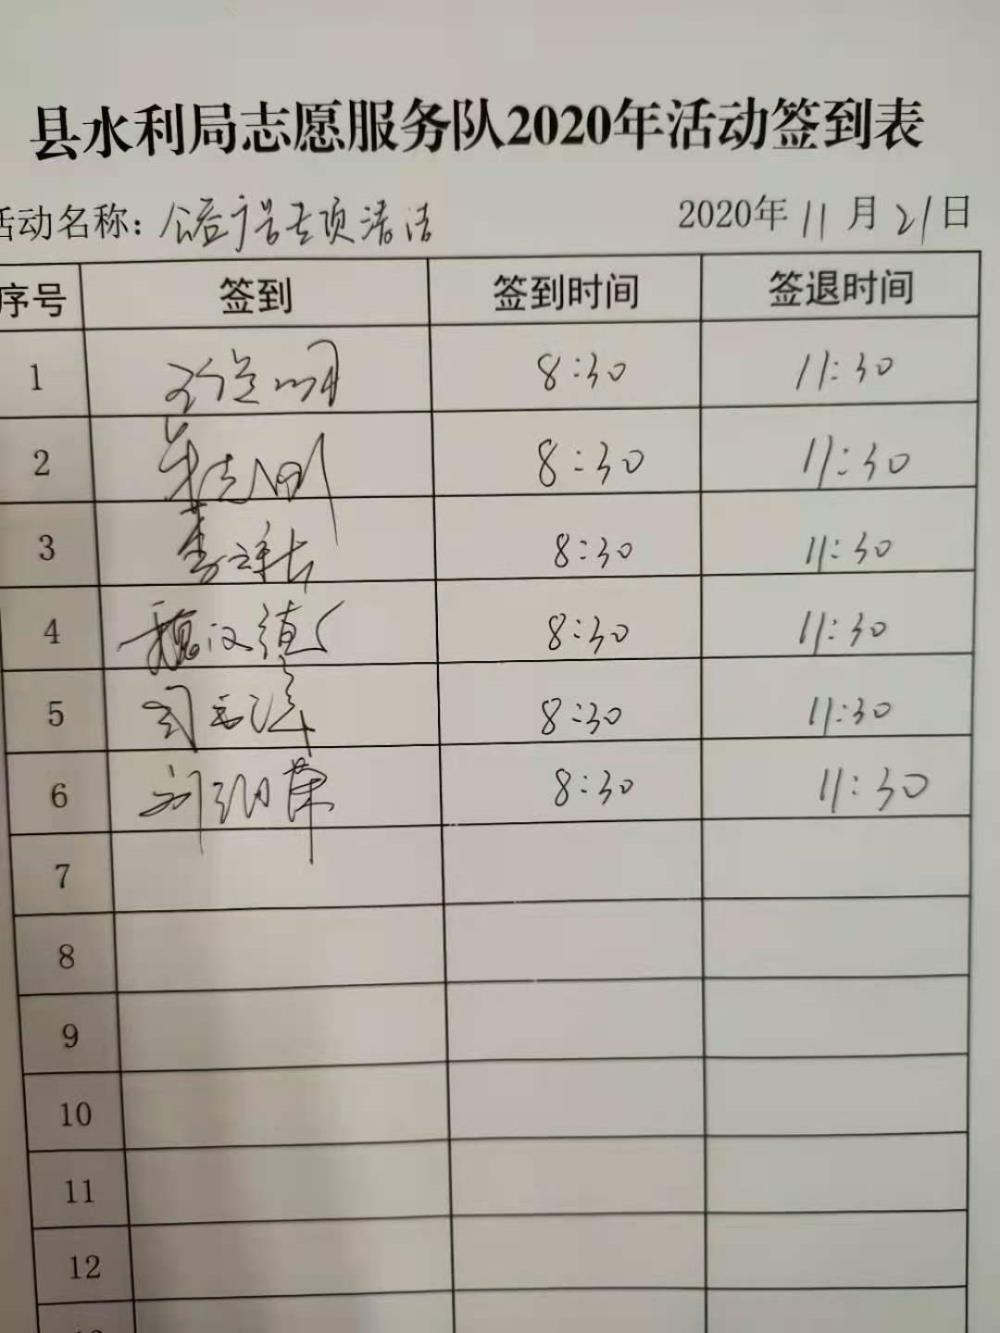 县水利局志愿服务队2020年活动签到表
活动名称：公益广告专项清洁 2020年11月21日
序号 签到 签到时间 签退时间
1 8:30 11:30
2 8:30 11:30
3 8:30 11:30
4 魏汉德 8:30 11:30
5 8:30 11:30
6 8:30 11:30
7
8
9
10
11
12